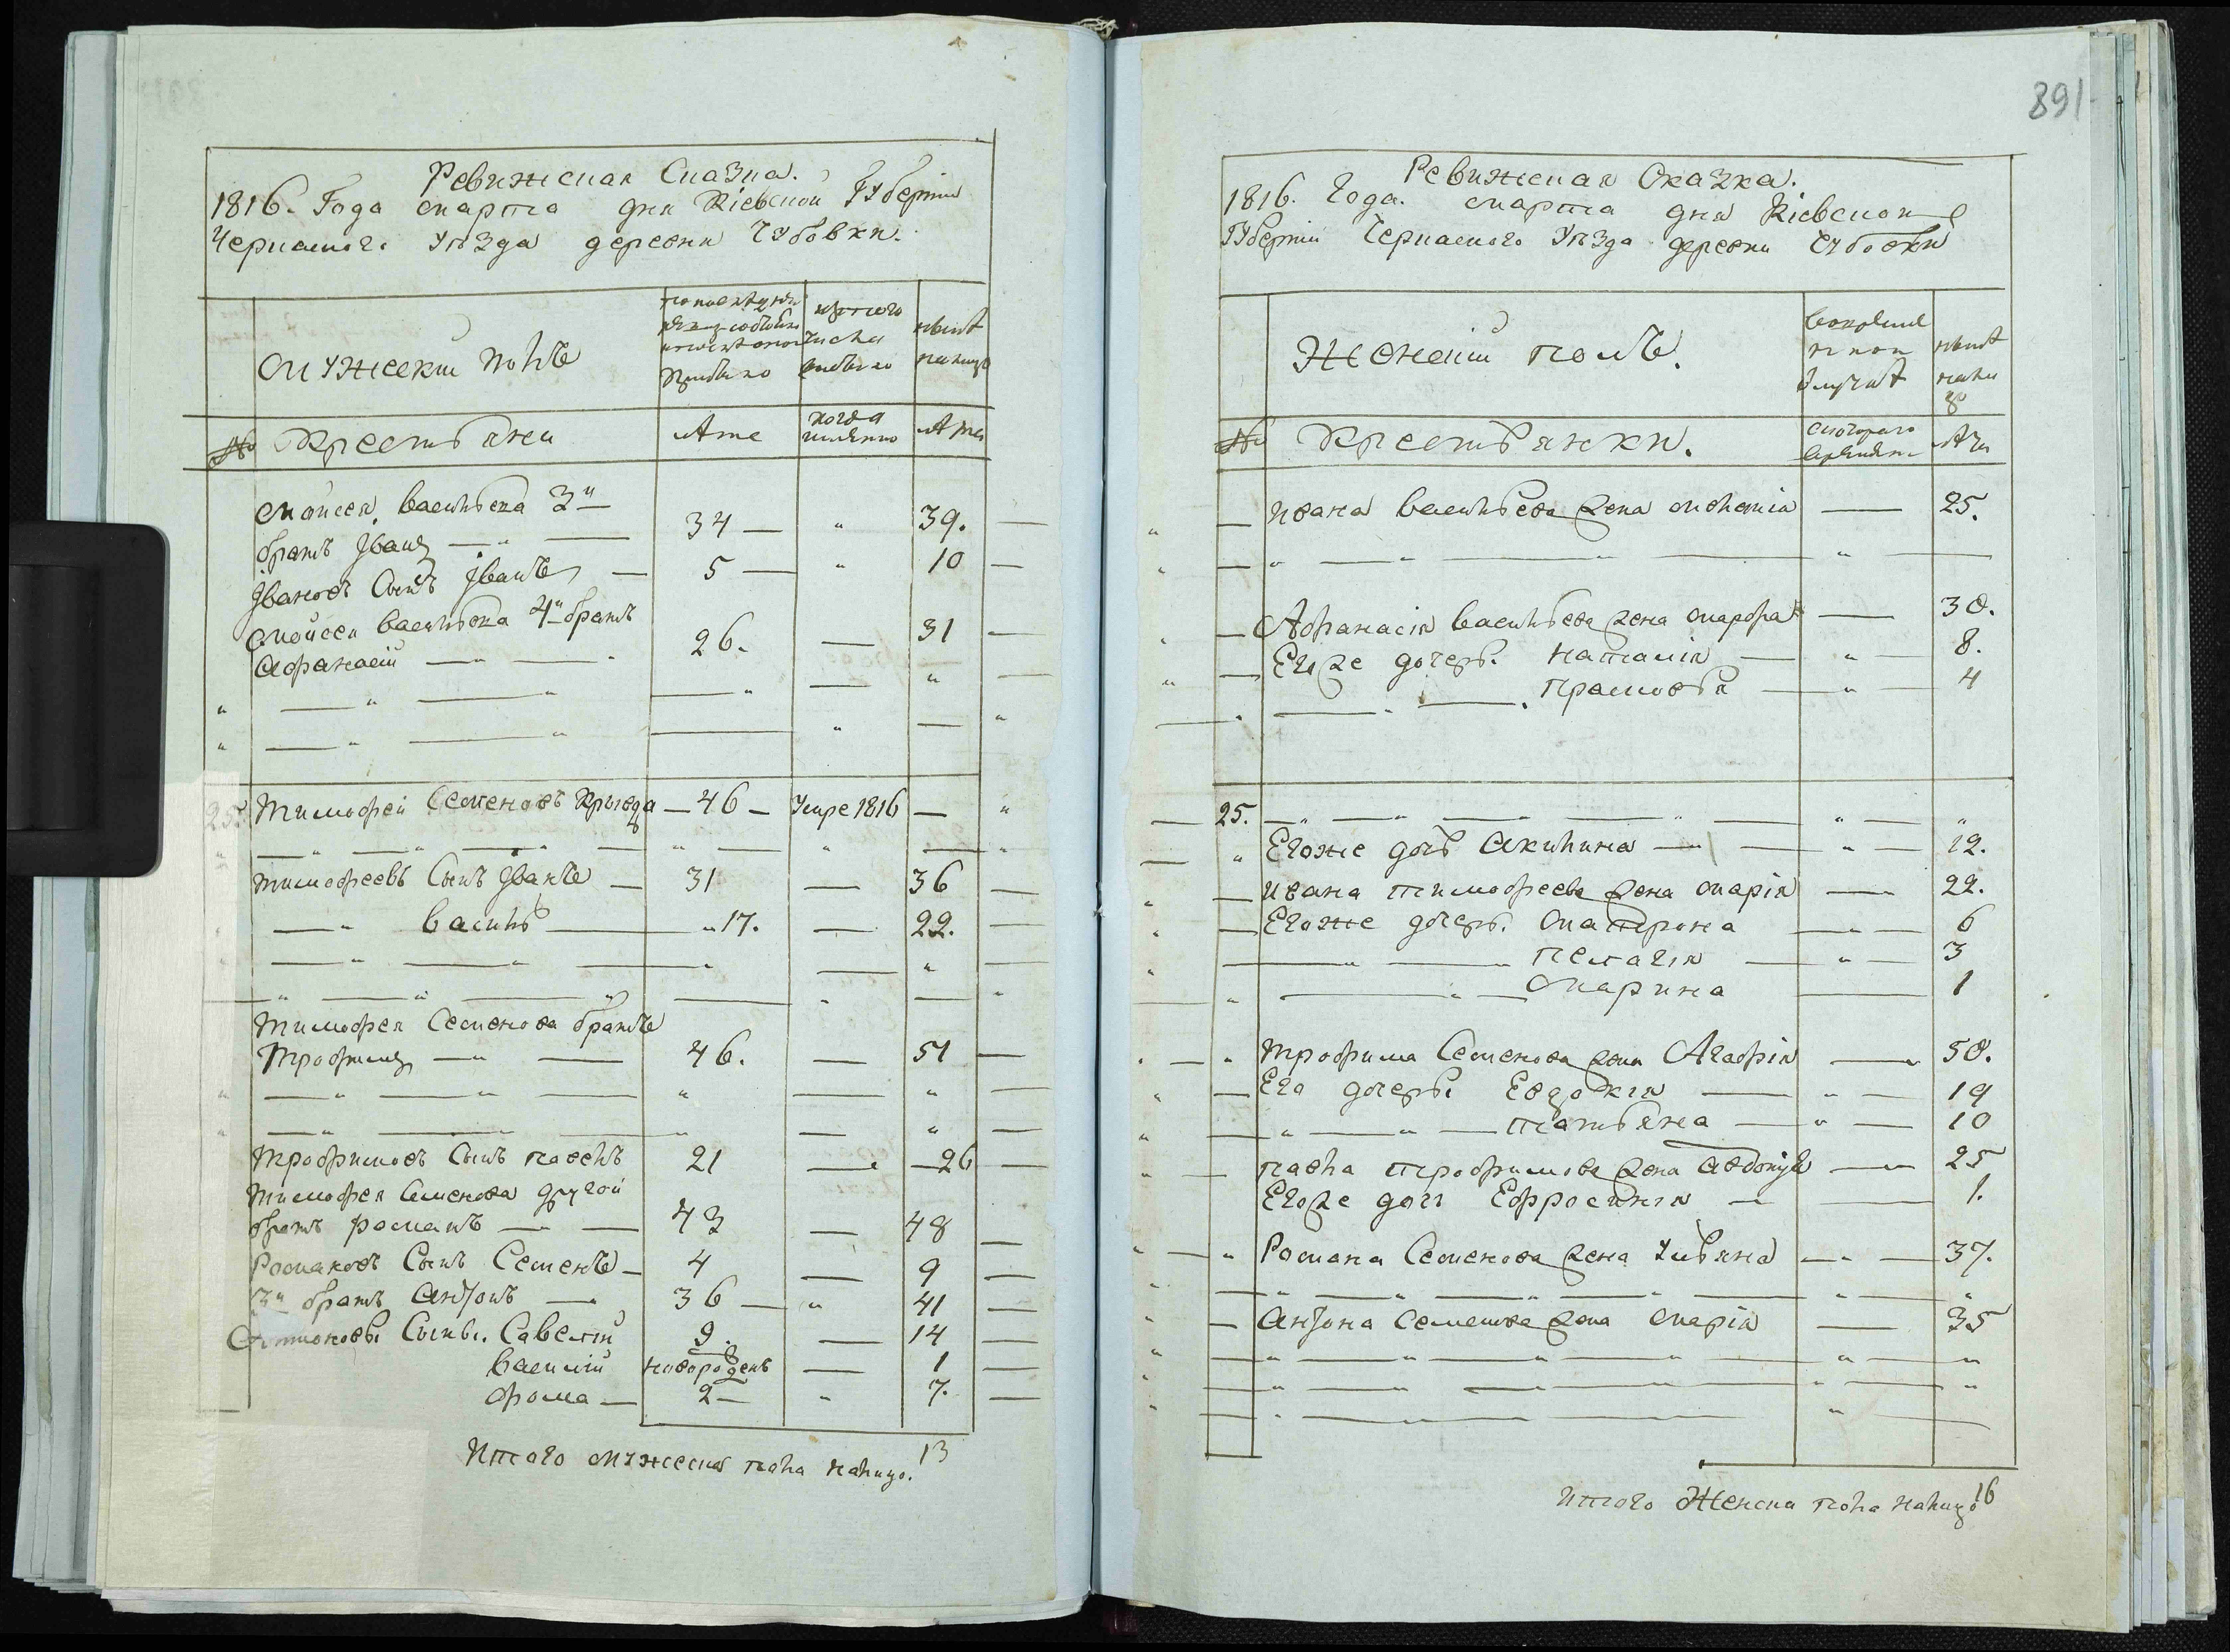 Ревижская Сказка.
1816. Года марта дня Кіевской Губерніи
Черкаского Уѣзда деревни Субовки.
Мужески полъ
по последней
ревизіи состояло
и после оной
прибыло
изъ того
числа
выбыло
нынѣ
налицо
№ Крестьяни
лѣта
когда
имянно
лѣта
Моисея Васильева 3й
братъ Іванъ 34 39.
Івановъ Сынъ Іванъ 5 10
Моисея Васильева 4й братъ
Афанасій 26. 31
25. Тимофей Семеновъ Крывда 46 Умре 1816
Тимофеевъ Сынъ Іванъ 31 36
Василь 17. 22.
Тимофея Семенова братъ
Трофимъ 46. 51
Трофимовъ Сынъ Павелъ 21 26
Тимофея Семенова другой
братъ Романъ 43 48
Романовъ Сынъ Семенъ 4 9
3й братъ Антонъ 36 41
Антоновы Сыны. Савелій 9. 14
Василій новороденъ 1
Фома 2 7.
Итого мужеска пола налицо. 13
891
Ревижская Сказка.
1816. Года. марта дня Кіевской
Губерніи Черкаского Уѣзда деревни Субовки
Женскій полъ.
во временной
отлучкѣ
нынѣ
нали
цо
№ Крестьянки.
съ которого
времяни
лѣта
Ивана Васильева жена Меланія 25.
Афанасія Васильева жена Марфа 30.
Его же дочери. Наталія 8.
Прасковья 4
25.
Егоже дочь Акилина 12.
Ивана Тимофеева жена Марія 22.
Егоже дочери. Матрона 6
Пелагія 3
Марина 1
Трофима Семенова жена Агафія 50.
Его дочери Евдокія 19
Татьяна 10
Павла Трофимова жена Авдотия 25
Егоже дочь Ефросинія 1.
Романа Семенова жена Ульяна 37.
Антона Семенова жена Марія 35
Итого Женска пола налицо 16